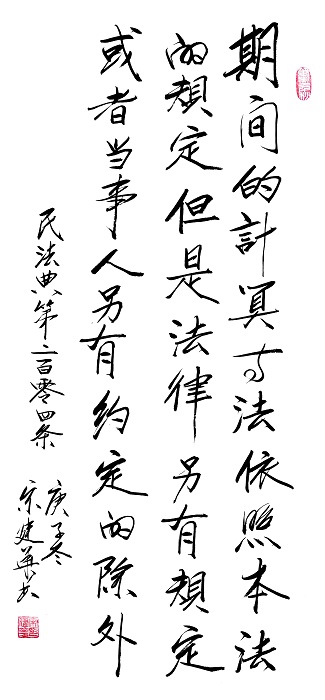 期间的計算方法依照本法
的規定但是法律另有規定
或者当事人另有约定的除外
民法典第二百零四条
庚子冬
宋建书